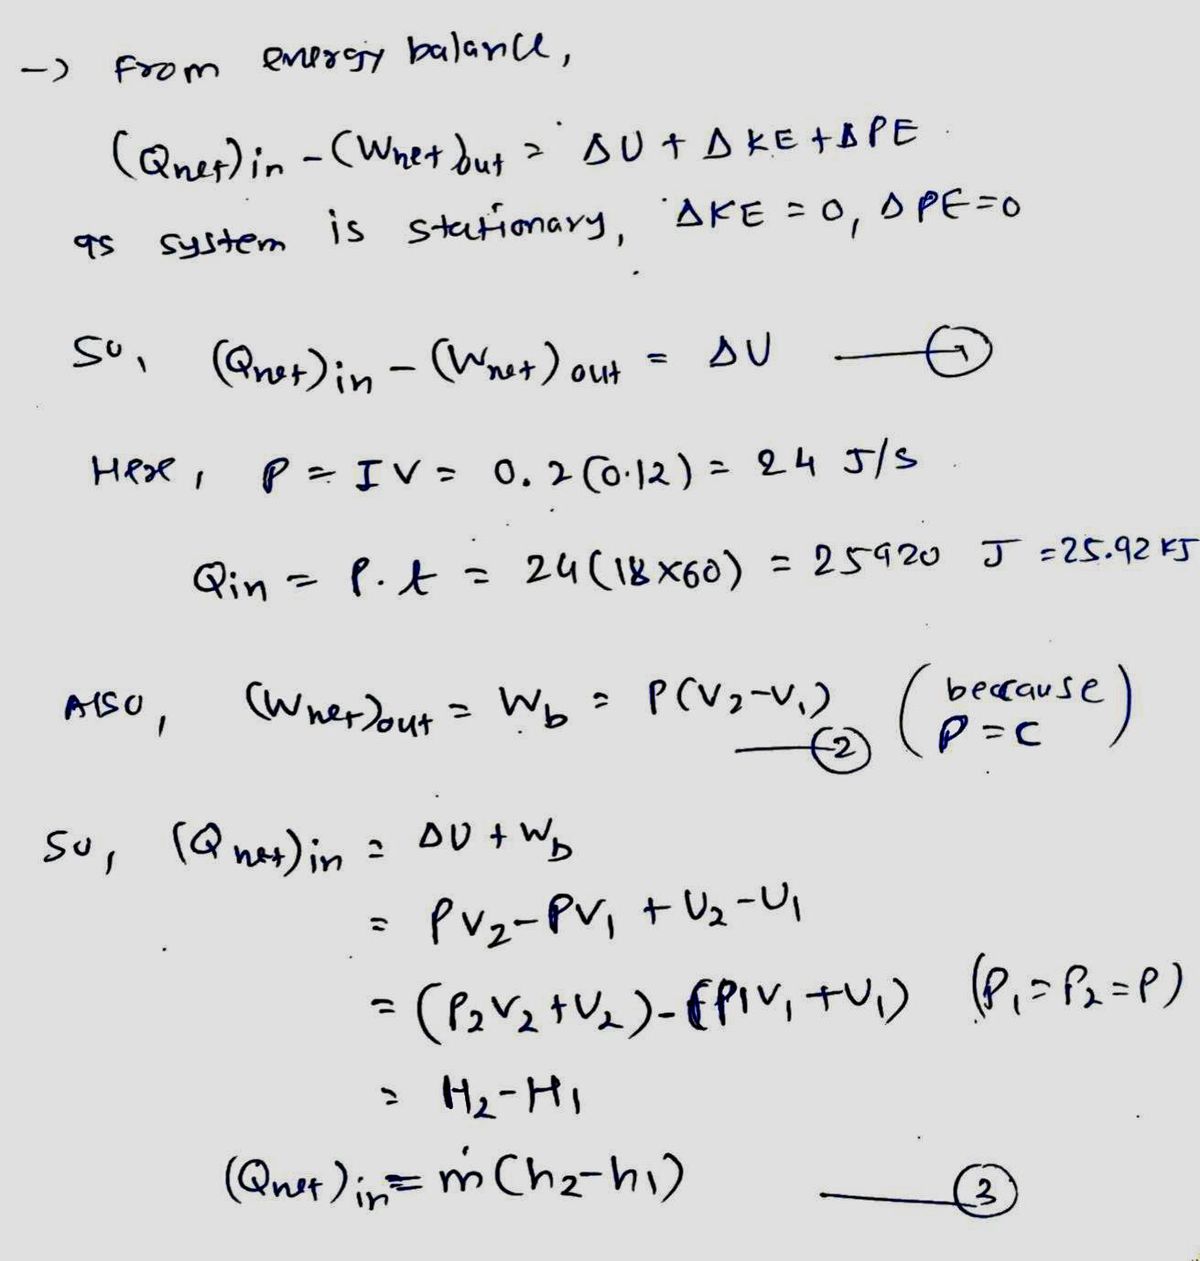 -> From energy balance,
(Qnet)in - (Wnet)out = ΔU + ΔKE + ΔPE
as system is stationary, ΔKE = 0, ΔPE = 0
So, (Qnet)in - (Wnet)out = ΔU —— 1
Here, P = IV = 0.2(0.12) = 24 J/s
Qin = P.t = 24(18×60) = 25920 J = 25.92 KJ
Also, (Wnet)out = Wb = P(V2-V1) —— 2 (because P = C)
So, (Qnet)in = ΔU + Wb
= PV2 - PV1 + U2 - U1
= (P2V2 + U2) - (P1V1 + U1) (P1 = P2 = P)
= H2 - H1
(Qnet)in = ṁ(h2-h1) —— 3